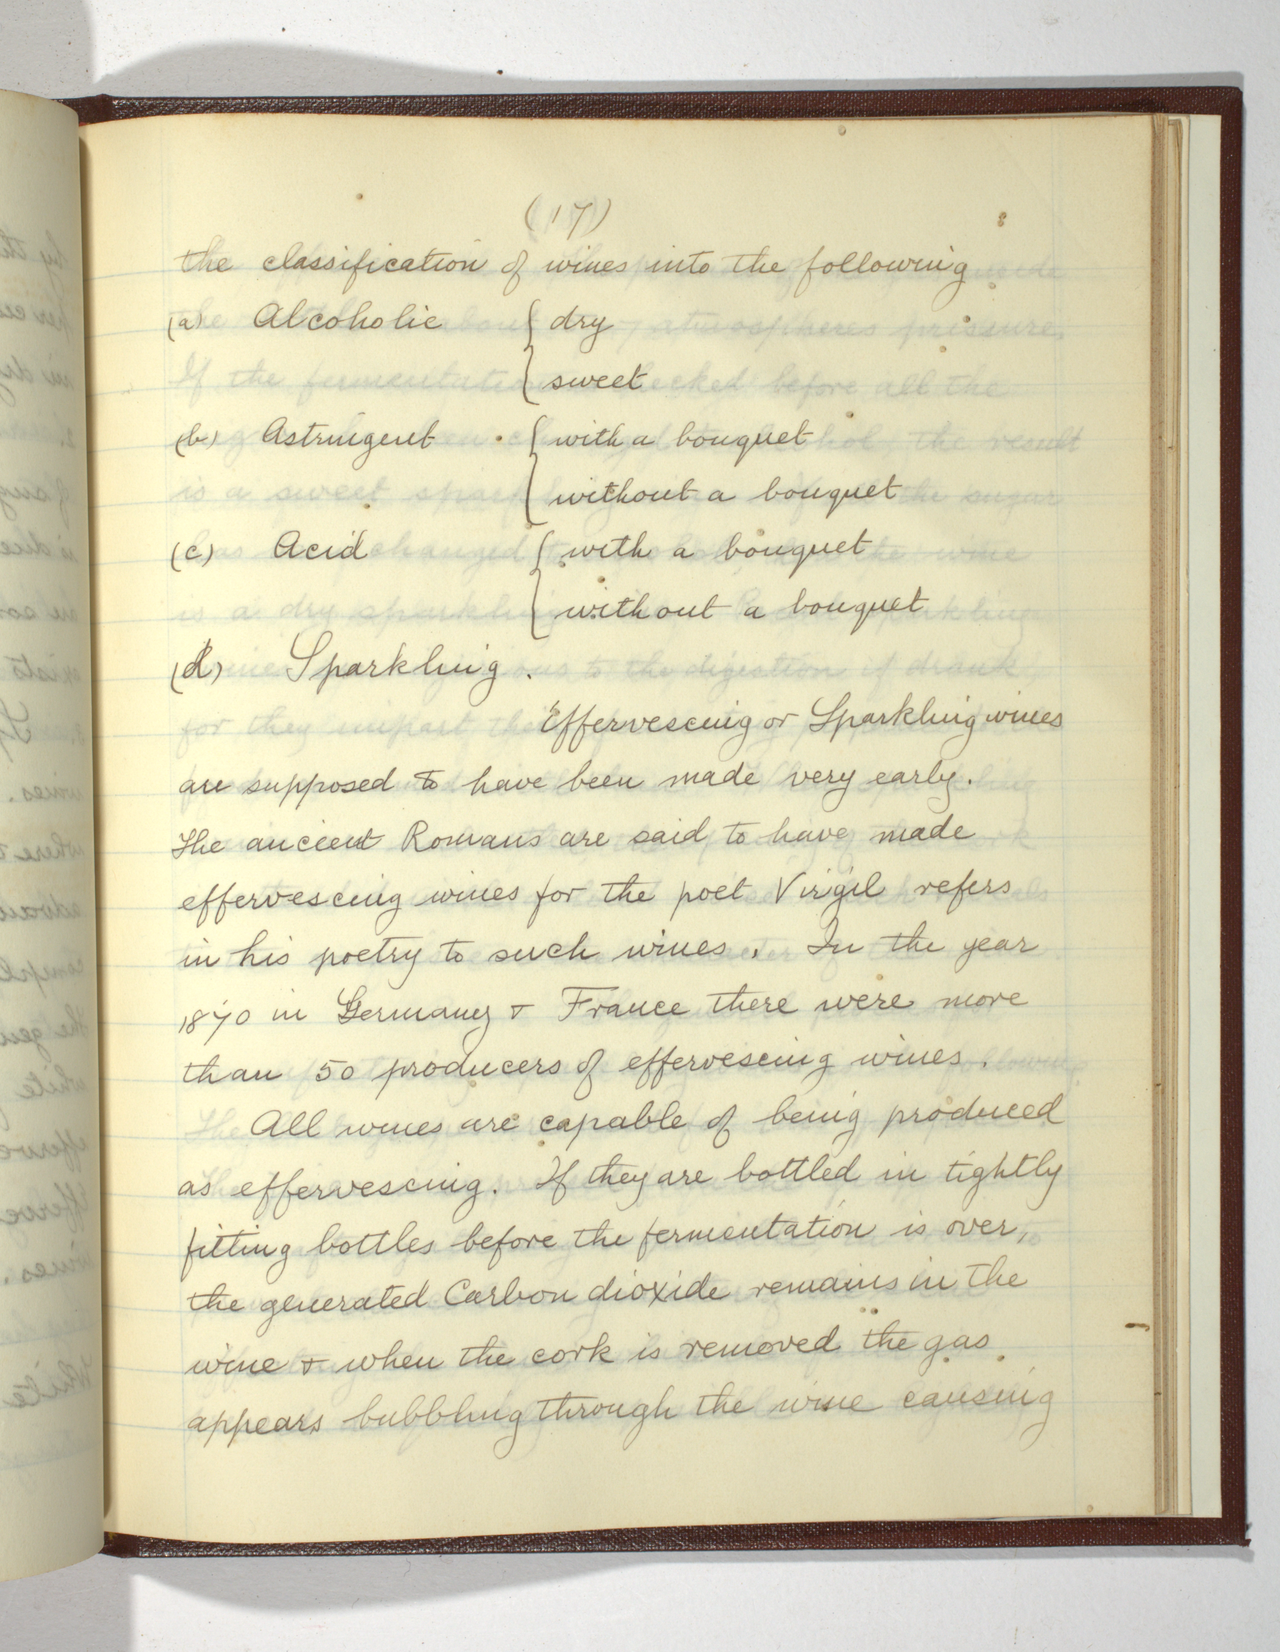 (17)
the classification of wines into the following
(a) Alcoholic { dry
{ sweet
(b) Astringent { with a bouquet
{ without a bouquet
(c) Acid { with a bouquet
{ without a bouquet
(d) Sparkling.
Effervescing or Sparkling wines
are supposed to have been made very early.
The ancient Romans are said to have made
effervescing wines for the poet Virgil refers
in his poetry to such wines. In the year
1870 in Germany & France there were more
than 50 producers of effervescing wines.
All wines are capable of being produced
as effervescing. If they are bottled in tightly
fitting bottles before the fermentation is over,
the generated Carbon dioxide remains in the
wine & when the cork is removed the gas
appears bubbling through the wine causing